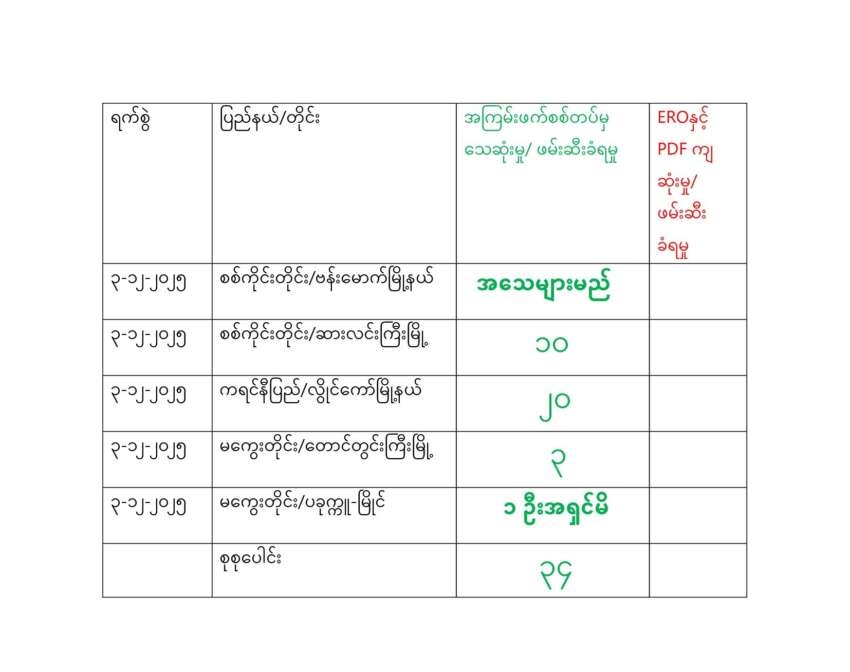 ရက်စွဲ
ပြည်နယ်/တိုင်း
အကြမ်းဖက်စစ်တပ်မှ
သေဆုံးမှု/ ဖမ်းဆီးခံရမှု
EROနှင့်
PDF ကျ
ဆုံးမှု/
ဖမ်းဆီး
ခံရမှု
၃-၁၂-၂၀၂၅
စစ်ကိုင်းတိုင်း/ဗန်းမောက်မြို့နယ်
အသေများမည်
၃-၁၂-၂၀၂၅
စစ်ကိုင်းတိုင်း/ဆားလင်းကြီးမြို့
၁၀
၃-၁၂-၂၀၂၅
ကရင်နီပြည်/လွိုင်ကော်မြို့နယ်
၂၀
၃-၁၂-၂၀၂၅
မကွေးတိုင်း/တောင်တွင်းကြီးမြို့
၃
၃-၁၂-၂၀၂၅
မကွေးတိုင်း/ပခုက္ကူ-မြိုင်
၁ ဦးအရှင်မိ
စုစုပေါင်း
၃၄